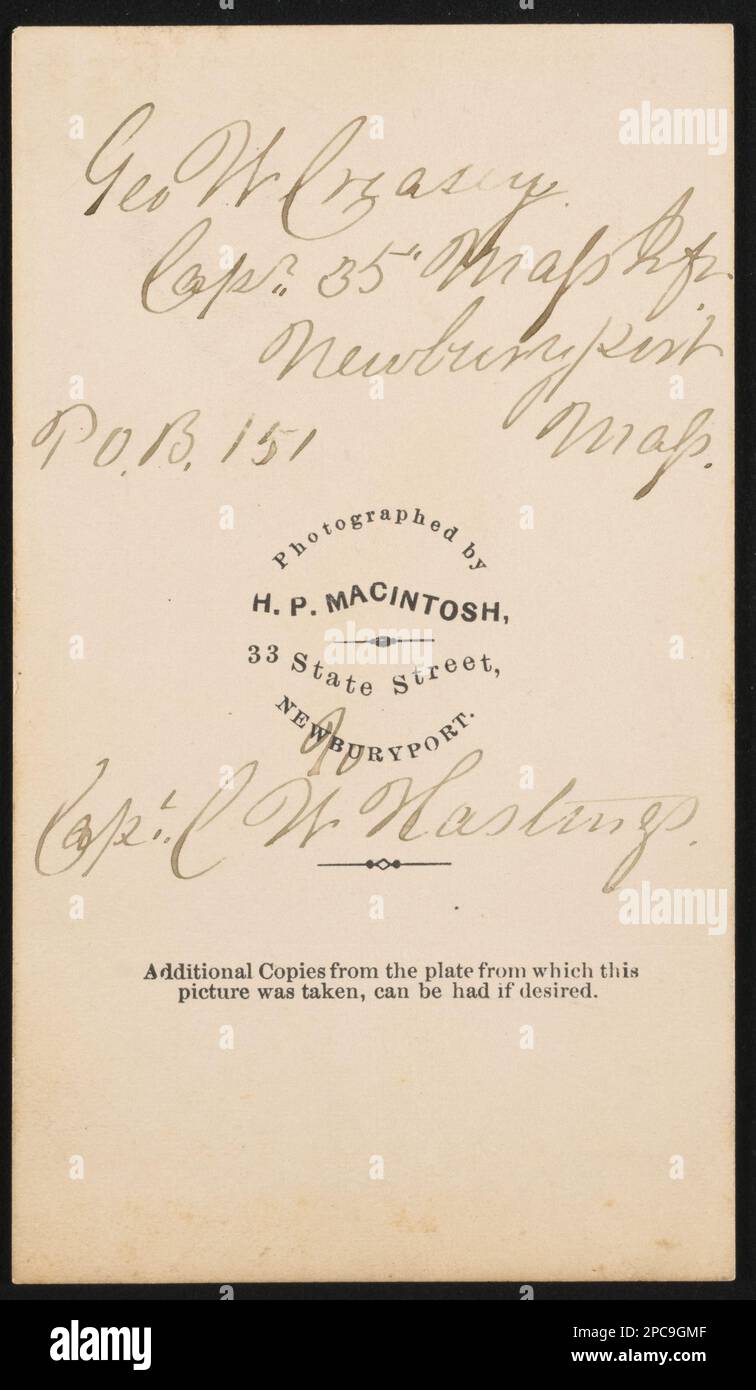 Geo W Creasey.
Capt. 35" Mass Inf.
Newburyport
P.O.B. 151 Mass.
Photographed by
H. P. MACINTOSH,
33 State Street,
NEWBURYPORT.
To
Capt. C W Hastings.
Additional Copies from the plate from which this
picture was taken, can be had if desired.
a alamy
alamy
Image ID: 2PC9GMF
www.alamy.com